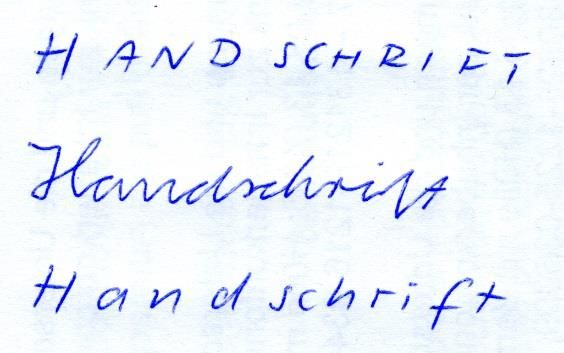 HANDSCHRIFT
Handschrift
Handschrift